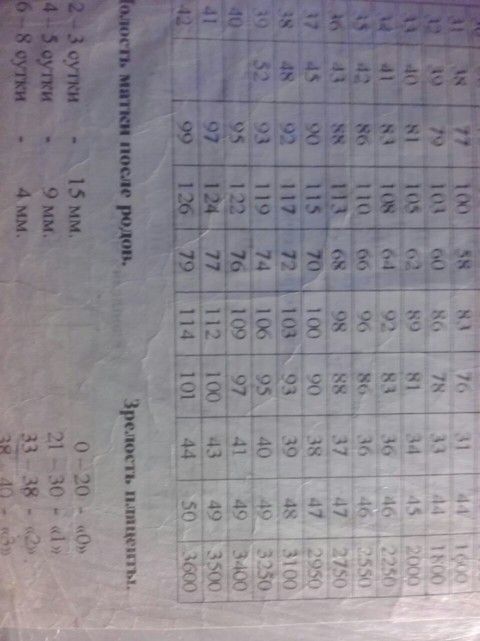 31 38 77 100 58 83 76 31 44 1600
32 39 79 103 60 86 78 33 44 1800
33 40 81 105 62 89 81 34 45 2000
34 41 83 108 64 92 83 36 46 2250
35 42 86 110 66 96 86 36 46 2550
36 43 88 113 68 98 88 37 47 2750
37 45 90 115 70 100 90 38 47 2950
38 48 92 117 72 103 93 39 48 3100
39 52 93 119 74 106 95 40 49 3250
40 95 122 76 109 97 41 49 3400
41 97 124 77 112 100 43 49 3500
42 99 126 79 114 101 44 50 3600
Полость матки после родов. Зрелость плаценты.
2 – 3 сутки - 15 мм. 0 – 20 - «0»
4 – 5 сутки - 9 мм. 21 – 30 - «1»
6 – 8 сутки - 4 мм. 33 – 38 - «2».
38 – 40 - «3»